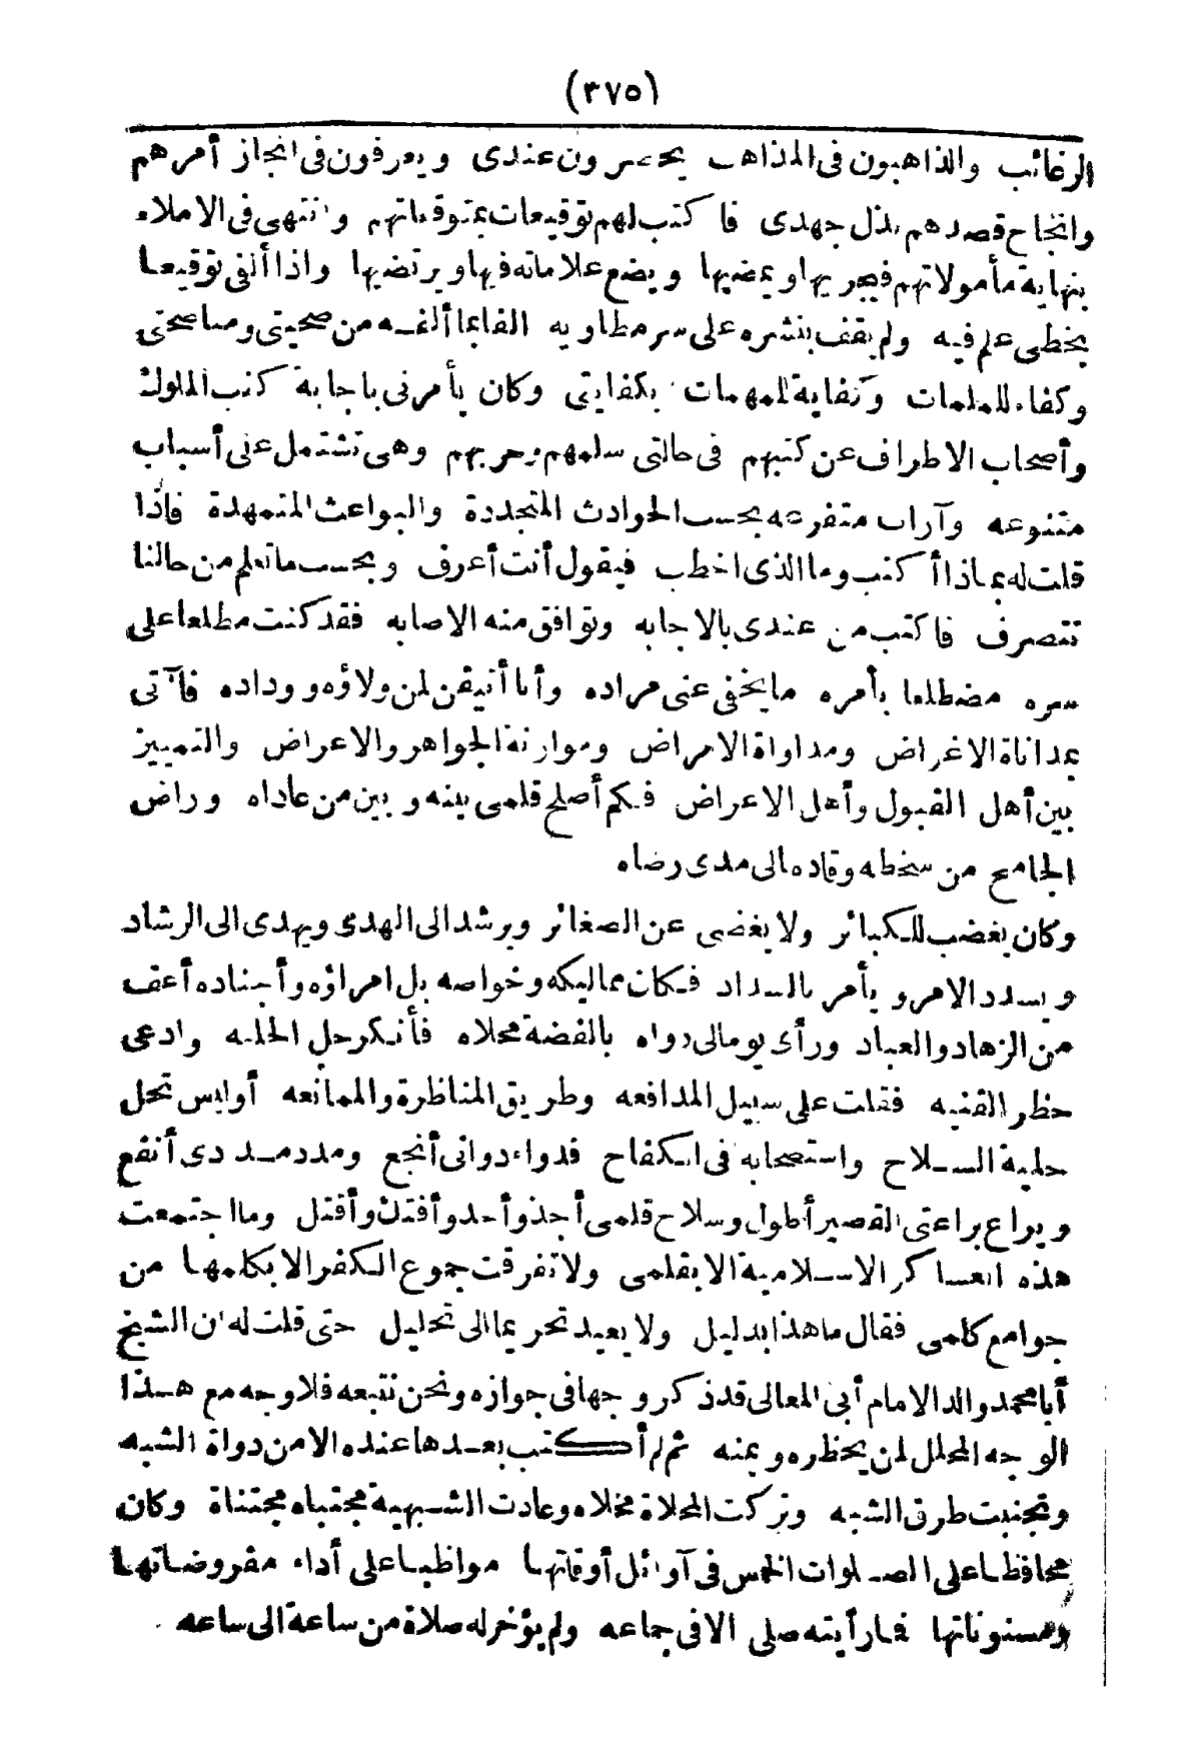 (٣٧٥)
الرغائب والذاهبون فى المذاهب يحضرون عندى ويعرفون فى انجاز أمرهم
وانجاح قصدهم بذل جهدى فاكتب لهم توقيعات بمتوقعاتهم وانتهى فى الاملاء
بنهاية مأمولاتهم فيجريها ويمضيها ويضع علاماته فيها ويرتضيها واذا ألفى توقيعا
بخطى علم فيه ولم يقف بنشره على سر مطاويه الفا بما ألفه من صحبتى ومناصحتى
وكفاء للملمات وكفاية للمهمات بكفايتى وكان يأمرنى باجابة كتب الملوك
وأصحاب الاطراف عن كتبهم فى حالتى سلمهم وحربهم وهى تشتمل على أسباب
متنوعه وآراب متفرعه بحسب الحوادث المتجددة والبواعث المتمهدة فاذا
قلت له بماذا أكتب وما الذى اخطب فيقول أنت أعرف وبحسب ما تعلم من حالنا
تتصرف فاكتب من عندى بالاجابه وتوافق منه الاصابه فقد كنت مطلعا على
سره مضطلعا بأمره ما يخفى عنى مراده وأنا أتيقن لمن ولاؤه ووداده فآتى
بمداناة الاغراض ومداواة الامراض وموازنة الجواهر والاعراض والتمييز
بين أهل القبول وأهل الاعراض فكم أصلح قلمى بينه وبين من عاداه وراض
الجامح من سخطه وقاده الى مدى رضاه
وكان يغضب للكبائر ولا يغضى عن الصغائر ويرشد الى الهدى ويهدى الى الرشاد
ويسدد الامر ويأمر بالسداد فكان مماليكه وخواصه بل امراؤه وأجناده أعف
من الزهاد والعباد ورأى يوما لى دواه بالفضة محلاه فأنكر حل الحليه وادعى
حظر القنيه فقلت على سبيل المدافعه وطريق المناظرة والممانعه أوليس تحل
حلية السلاح واستصحابه فى الكفاح فدواء دواتى أنجع ومدد مدادى أنفع
ويراع براعتى القصير أطول وسلاح قلمى أجذ وأحد وأفتك وأقتل وما اجتمعت
هذه العساكر الاسلامية الا بقلمى ولا تفرقت جموع الكفر الا بكلمها من
جوامع كلمى فقال ما هذا بدليل ولا يعيد تحريما الى تحليل حتى قلت له ان الشيخ
أبا محمد والد الامام أبى المعالى قد ذكر وجها فى جوازه ونحن نتبعه فلا وجه مع هذا
الوجه المحلل لمن يحظره ويمنعه ثم لم أكتب بعدها عنده الا من دواة الشبه
وتجنبت طرق الشبه وتركت المحلاة مخلاه وعادت الشبهية مجتباه مجتناة وكان
محافظا على الصلوات الخمس فى أوائل أوقاتها مواظبا على أداء مفروضاتها
ومسنوناتها فما رأيته صلى الا فى جماعه ولم يؤخر له صلاة من ساعة الى ساعه